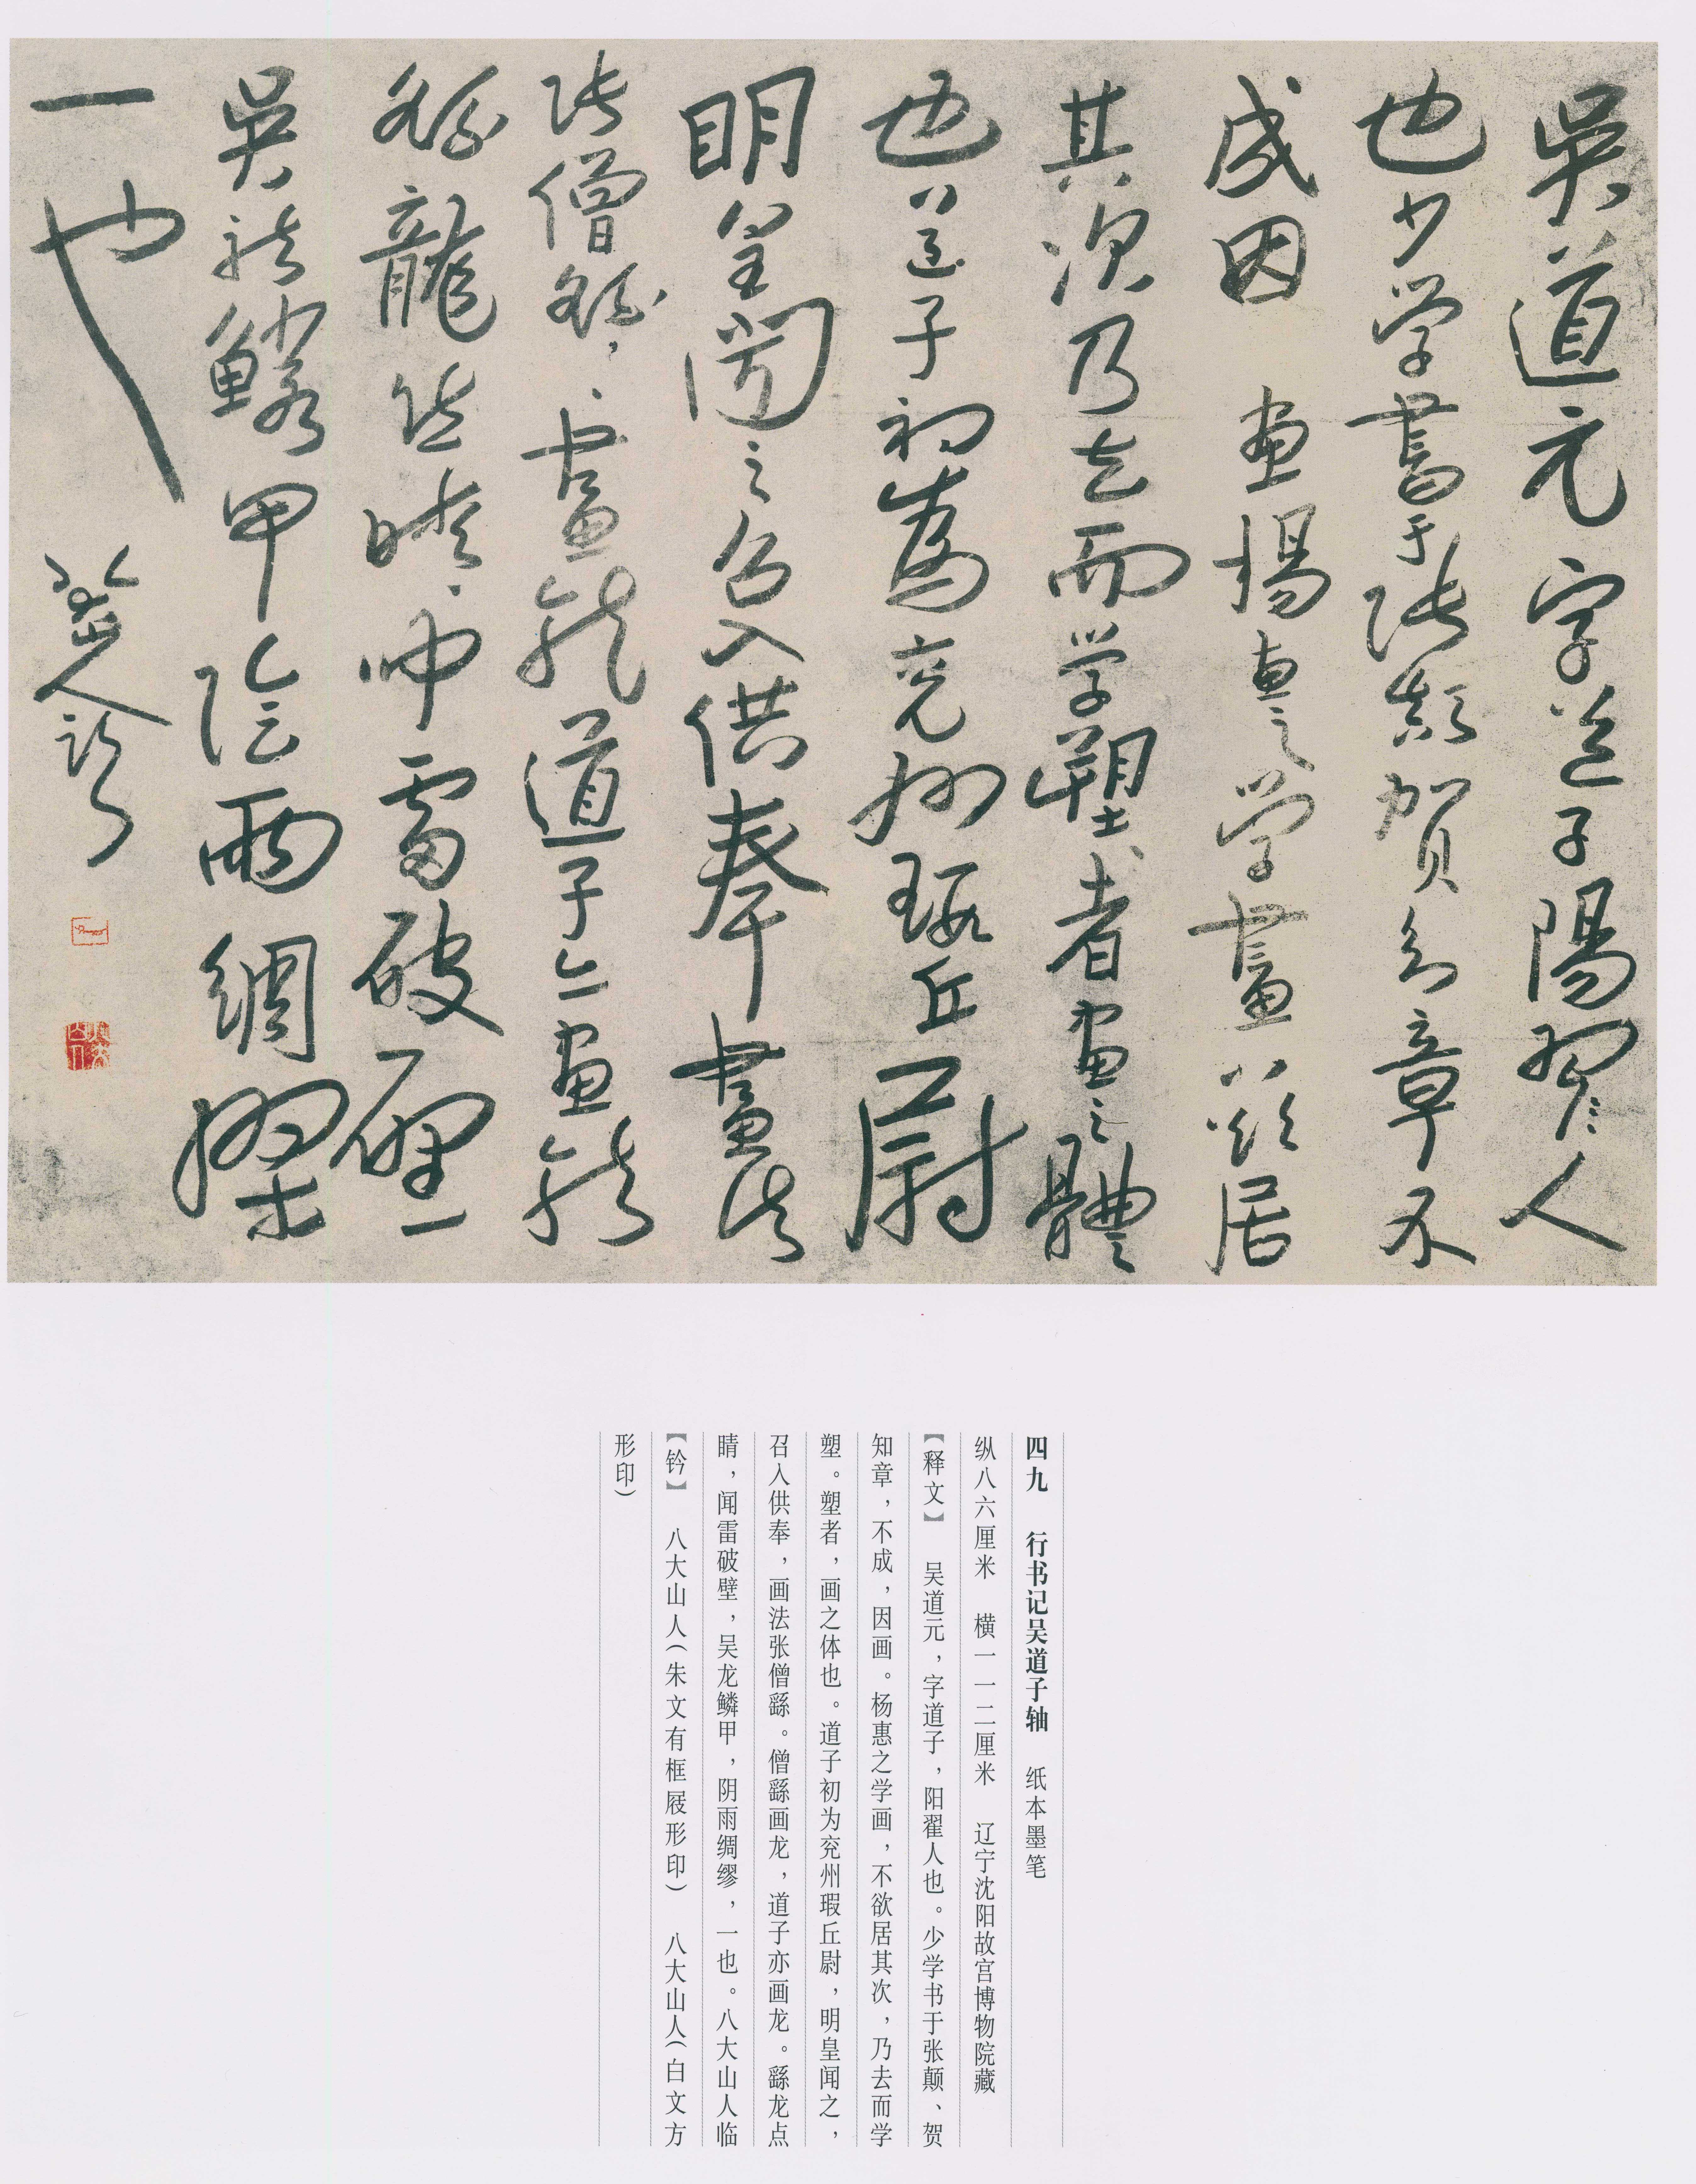 吳道元字道子陽翟人
也少学書于張顛賀知章不
成因畫楊惠之学畫不欲居
其次乃去而学塑者畫之體
也道子初為兖州瑕丘尉
明皇闻之召入供奉畫法
张僧繇〻〻畫龍道子亦畫龍
繇龍点睛闻雷破壁一
吳龍鱗甲陰雨綢繆
一也
八大山人临
四九 行书记吴道子轴 纸本墨笔
纵八六厘米 横一一二厘米 辽宁沈阳故宫博物院藏
【释文】 吴道元，字道子，阳翟人也。少学书于张颠、贺
知章，不成，因画。杨惠之学画，不欲居其次，乃去而学
塑。塑者，画之体也。道子初为兖州瑕丘尉，明皇闻之，
召入供奉，画法张僧繇。僧繇画龙，道子亦画龙。繇龙点
睛，闻雷破壁，吴龙鳞甲，阴雨绸缪，一也。八大山人临
【钤】 八大山人（朱文有框屐形印） 八大山人（白文方
形印）